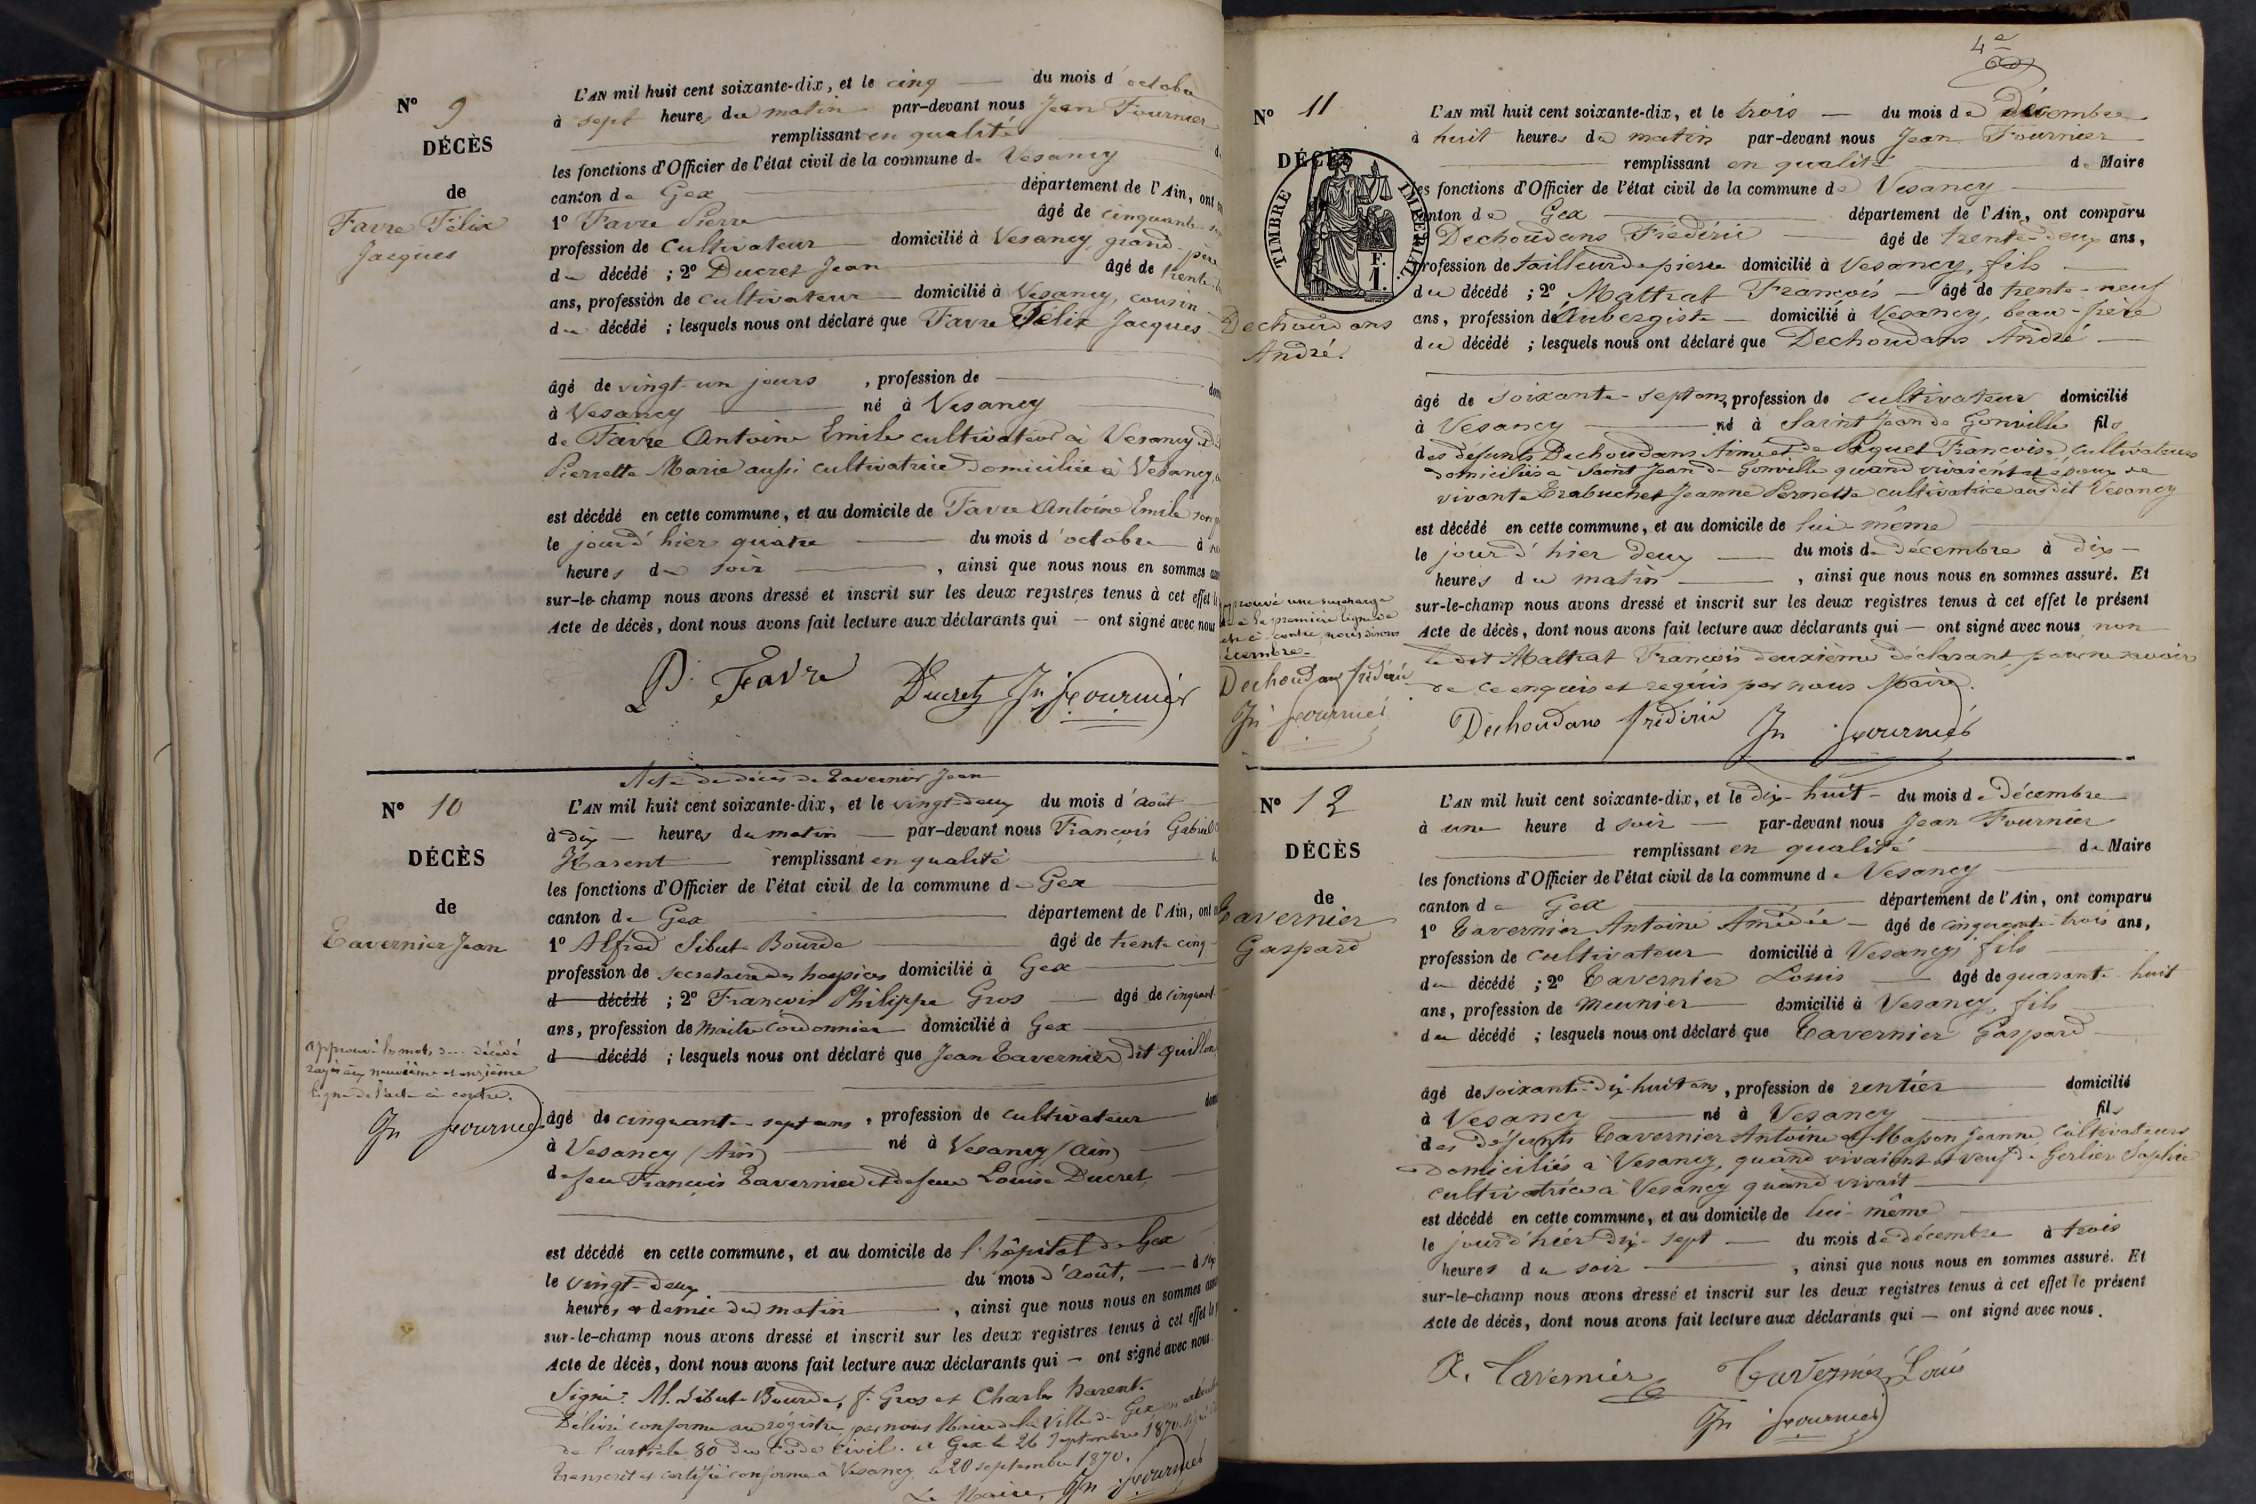 Nº 9
DÉCÈS
de
Favre Félix
Jacques
L'AN mil huit cent soixante-dix, et le cinq du mois d'octobre
à sept heures du matin par-devant nous Jean Fournier
remplissant en qualité
les fonctions d'Officier de l'état civil de la commune de Vesancy
canton de Gex département de l'Ain, ont
1º Favre Pierre âgé de cinquante
profession de cultivateur domicilié à Vesancy, grand-père
du décédé ; 2º Ducret Jean âgé de trente
ans, profession de cultivateur domicilié à Vesancy, cousin
du décédé ; lesquels nous ont déclaré que Favre Félix Jacques
âgé de vingt-un jours, profession de
à Vesancy né à Vesancy
de Favre Antoine Emile cultivateur à Vesancy et de
Pierrette Marie aussi cultivatrice domiciliée à Vesancy,
est décédé en cette commune, et au domicile de Favre Antoine Emile son
le jour d'hier quatre du mois d'octobre à
heures du soir, ainsi que nous nous en sommes
sur-le-champ nous avons dressé et inscrit sur les deux registres tenus à cet effet
Acte de décès, dont nous avons fait lecture aux déclarants qui — ont signé avec nous
P. Favre Ducret Jn Fournier
Acte de décès de Tavernier Jean
Nº 10
DÉCÈS
de
Tavernier Jean
approuvé les mots d... décédé
rayés aux neuvième et onzième
lignes de l'acte ci contre.
Jn Fournier
L'AN mil huit cent soixante-dix, et le vingt-deux du mois d'août
à dix heures du matin par-devant nous François Gabriel
Harent remplissant en qualité
les fonctions d'Officier de l'état civil de la commune de Gex
canton de Gex département de l'Ain, ont
1º Alfred Sibut-Bourde âgé de trente cinq
profession de secrétaire des hospices domicilié à Gex
d décédé ; 2º François Philippe Gros âgé de cinquante
ans, profession de Maître Cordonnier domicilié à Gex
d décédé ; lesquels nous ont déclaré que Jean Tavernier dit Quillon
âgé de cinquante-sept ans, profession de cultivateur
à Vesancy (Ain) né à Vesancy (Ain)
de feu François Tavernier et de feue Louise Ducret
est décédé en cette commune, et au domicile de l'hôpital de Gex
le vingt-deux du mois d'Août, à
heures et demie du matin, ainsi que nous nous en sommes
sur-le-champ nous avons dressé et inscrit sur les deux registres tenus à cet effet le
Acte de décès, dont nous avons fait lecture aux déclarants qui — ont signé avec nous
Signé: Al. Sibut-Bourde, f. Gros et Charles harent.
Délivré conforme au registre par nous Maire de la ville de Gex en
de l'article 80 du Code Civil. A Gex le 26 Septembre 1870.
Transcrit et certifié conforme à Vesancy le 20 septembre 1870.
Le Maire, Jn Fournier
4e
Nº 11
DÉCÈS
TIMBRE IMPÉRIAL.
F.
1.
Dechoudans
André.
L'AN mil huit cent soixante-dix, et le trois du mois de Décembre
à huit heures du matin par-devant nous Jean Fournier
remplissant en qualité de Maire
les fonctions d'Officier de l'état civil de la commune de Vesancy
canton de Gex département de l'Ain, ont comparu
Dechoudans Frédéric âgé de trente-deux ans,
profession de tailleur de pierre domicilié à Vesancy, fils
du décédé ; 2º Mattrat François âgé de trente-neuf
ans, profession d'Aubergiste domicilié à Vesancy, beau-père
du décédé ; lesquels nous ont déclaré que Dechoudans André
âgé de soixante-sept ans, profession de cultivateur domicilié
à Vesancy né à Saint Jean de Gonville fils
des défunts Dechoudans Aimé et de Paquet Françoise, cultivateurs
domiciliés à Saint Jean de Gonville quand vivaient et époux de
vivante Trabuchet Jeanne Pernette cultivatrice audit Vesancy
est décédé en cette commune, et au domicile de lui-même
le jour d'hier deux du mois de décembre à dix
heures du matin, ainsi que nous nous en sommes assuré. Et
sur-le-champ nous avons dressé et inscrit sur les deux registres tenus à cet effet le présent
Acte de décès, dont nous avons fait lecture aux déclarants qui — ont signé avec nous non
le dit Mattrat François deuxième déclarant pour ne savoir
de ce enquis et requis par nous Maire.
Dechoudans frédéric Jn Fournier
approuvé une surcharge
à la première ligne de
ci contre, nous disons
décembre.
Dechoudans frédéric
Jn Fournier
Nº 12
DÉCÈS
de
Tavernier
Gaspard
L'AN mil huit cent soixante-dix, et le dix-huit du mois de décembre
à une heure d soir par-devant nous Jean Fournier
remplissant en qualité de Maire
les fonctions d'Officier de l'état civil de la commune de Vesancy
canton de Gex département de l'Ain, ont comparu
1º Tavernier Antoine Amédée âgé de cinquante-trois ans,
profession de cultivateur domicilié à Vesancy, fils
du décédé ; 2º Tavernier Louis âgé de quarante huit
ans, profession de Meunier domicilié à Vesancy, fils
du décédé ; lesquels nous ont déclaré que Tavernier Gaspard
âgé de soixante-dix-huit ans, profession de rentier domicilié
à Vesancy né à Vesancy fils
des défunts Tavernier Antoine et Masson Jeanne, cultivateurs
domiciliés à Vesancy, quand vivaient et veuf de Gerlier
cultivatrice à Vesancy quand vivait
est décédé en cette commune, et au domicile de lui-même
le jour d'hier dix-sept du mois de décembre à trois
heures du soir, ainsi que nous nous en sommes assuré. Et
sur-le-champ nous avons dressé et inscrit sur les deux registres tenus à cet effet le présent
Acte de décès, dont nous avons fait lecture aux déclarants qui — ont signé avec nous.
A. Tavernier Tavernier Louis
Jn Fournier